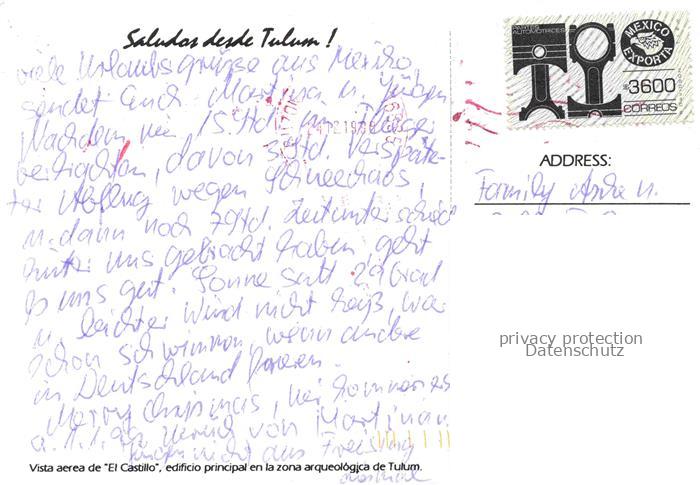 Saludos desde Tulum !
viele Urlaubsgrüße aus Mexiko
sendet Euch Martina u. Jürgen
Nachdem wir 15 Std. im Flieger
, davon 5 Std.
Abflug wegen Schneechaos,
u. dann noch 7 Std. Zeitunterschied
hinter uns gebracht haben, geht
es uns gut. Sonne satt 28 Grad
u. leichter Wind nicht heiß, war
schon schwimmen, wenn andere
in Deutschland frieren.
Merry Christmas,
von Martina u.
nicht aus Freising
Vista aerea de "El Castillo", edificio principal en la zona arqueológica de Tulum.
PARTES AUTOMOTRICES
MEXICO EXPORTA
$3600
CORREOS
ADDRESS:
Family Andre u.
privacy protection
Datenschutz